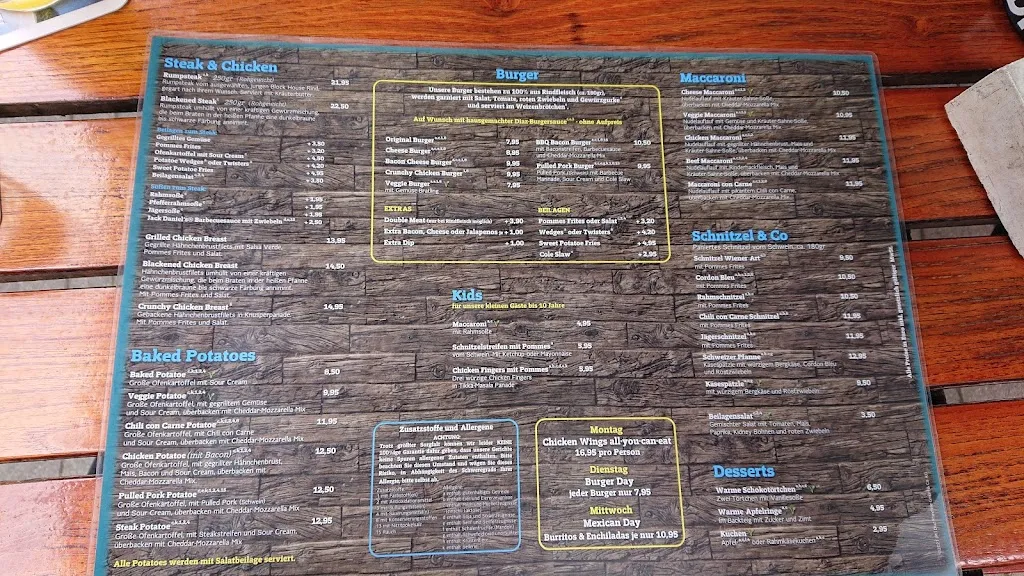 Steak & Chicken
Rumpsteak 250gr (Rohgewicht) 21,95
Rumpsteak vom ausgewählten, jungen Block House Rind,
gegart nach Ihrem Wunsch, serviert mit Kräuterbutter
Blackened Steak 250gr (Rohgewicht) 22,50
Rumpsteak umhüllt von einer kräftigen Gewürzmischung,
die beim Braten in der heißen Pfanne eine dunkelbraune
bis schwarze Färbung annimmt.
Beilagen zum Steak:
Gegrilltes Gemüse
Pommes Frites + 3,50
Ofenkartoffel mit Sour Cream + 3,20
Potatoe Wedges oder Twisters + 4,20
Sweet Potatoe Fries
Beilagensalat
Soßen zum Steak:
Rahmsoße + 1,95
Pfefferrahmsoße + 1,95
Jägersoße
Jack Daniel's Barbecuesauce mit Zwiebeln
Grilled Chicken Breast 13,95
Gegrillte Hähnchenbrustfilets mit Salsa Verde,
Pommes Frites und Salat.
Blackened Chicken Breast 14,50
Hähnchenbrustfilets umhüllt von einer kräftigen
Gewürzmischung, die beim Braten in der heißen Pfanne
eine dunkelbraune bis schwarze Färbung annimmt.
Mit Pommes Frites und Salat.
Crunchy Chicken Breast 14,95
Gebackene Hähnchenbrustfilets in Knusperpanade.
Mit Pommes Frites und Salat.
Baked Potatoes
Baked Potatoe 8,50
Große Ofenkartoffel mit Sour Cream
Veggie Potatoe 9,95
Große Ofenkartoffel, mit gegrilltem Gemüse
und Sour Cream, überbacken mit Cheddar-Mozzarella Mix
Chili con Carne Potatoe 11,95
Große Ofenkartoffel, mit Chili con Carne
und Sour Cream, überbacken mit Cheddar-Mozzarella Mix
Chicken Potatoe (mit Bacon) 12,50
Große Ofenkartoffel, mit gegrillter Hähnchenbrust,
Mais, Bacon und Sour Cream, überbacken mit
Cheddar-Mozzarella Mix
Pulled Pork Potatoe 12,50
Große Ofenkartoffel, mit Pulled Pork (Schwein)
und Sour-Cream, überbacken mit Cheddar Mozzarella Mix
Steak Potatoe 12,95
Große Ofenkartoffel, mit Steakstreifen und Sour Cream,
überbacken mit Cheddar-Mozzarella Mix
Alle Potatoes werden mit Salatbeilage serviert.
Burger
Unsere Burger bestehen zu 100% aus Rindfleisch (ca. 180gr),
werden garniert mit Salat, Tomate, roten Zwiebeln und Gewürzgurke
und serviert im Weizenbrötchen
Auf Wunsch mit hausgemachter Diaz-Burgersauce - ohne Aufpreis
Original Burger 7,95
Cheese Burger 9,95
Bacon Cheese Burger 9,95
Crunchy Chicken Burger 9,95
Veggie Burger 7,95
mit Gemüse-Bratling
BBQ Bacon Burger 10,50
mit Baconstreifen, Barbecuesauce
und Cheddar-Mozzarella Mix
Pulled Pork Burger 9,95
Pulled Pork (Schwein) mit Barbecue
Marinade, Sour Cream und Cole Slaw
EXTRAS
Double Meat (nur bei Rindfleisch möglich) + 3,90
Extra Bacon, Cheese oder Jalapenos je + 1,00
Extra Dip + 1,00
BEILAGEN
Pommes Frites oder Salat + 3,20
Wedges oder Twisters + 4,20
Sweet Potatoe Fries + 4,95
Cole Slaw + 2,95
Kids
für unsere kleinen Gäste bis 10 Jahre
Maccaroni 4,95
mit Rahmsoße
Schnitzelstreifen mit Pommes 5,95
vom Schwein. Mit Ketchup oder Mayonnaise
Chicken Fingers mit Pommes 5,95
Drei würzige Chicken Fingers
in Tikka Masala Panade
Zusatzstoffe und Allergene
ACHTUNG:
Trotz größter Sorgfalt können wir leider KEINE
100%ige Garantie dafür geben, dass unsere Gerichte
keine Spuren allergener Zutaten enthalten. Bitte
beachten Sie diesen Umstand und wägen Sie dieses
Risiko, in Abhängigkeit des Schweregrads Ihrer
Allergie, bitte selbst ab.
Montag
Chicken Wings all-you-can-eat
16,95 pro Person
Dienstag
Burger Day
jeder Burger nur 7,95
Mittwoch
Mexican Day
Burritos & Enchiladas je nur 10,95
Maccaroni
Cheese Maccaroni 10,50
Nudelauflauf mit Kräuter-Sahne-Soße,
überbacken mit Cheddar-Mozzarella Mix
Veggie Maccaroni 10,95
Nudelauflauf mit Gemüse und Kräuter-Sahne-Soße,
überbacken mit Cheddar-Mozzarella Mix
Chicken Maccaroni 11,95
Nudelauflauf mit Hähnchenbrust, Mais und
Kräuter-Sahne-Soße, überbacken mit Cheddar-Mozzarella Mix
Beef Maccaroni 11,95
Nudelauflauf mit Rinderhackfleisch, Mais und
Kräuter-Sahne-Soße, überbacken mit Cheddar-Mozzarella Mix
Maccaroni con Carne 11,95
Nudelauflauf mit pikantem Chili con Carne,
überbacken mit Cheddar-Mozzarella Mix
Schnitzel & Co
Paniertes Schnitzel vom Schwein, ca. 180gr
Schnitzel Wiener Art 9,50
mit Pommes Frites
Cordon Bleu 10,50
mit Pommes Frites
Rahmschnitzel 10,50
mit Pommes Frites
Chili con Carne Schnitzel 11,95
mit Pommes Frites
Jägerschnitzel 11,95
mit Pommes Frites
Schweizer Pfanne 12,95
Käsespätzle mit würzigem Bergkäse, Cordon Bleu
und Röstzwiebeln
Käsespätzle 9,50
mit würzigem Bergkäse und Röstzwiebeln
Beilagensalat 3,50
Gemischter Salat mit Tomaten, Mais,
Paprika, Kidney Bohnen und roten Zwiebeln
Desserts
Warme Schokotörtchen 6,50
Zwei Törtchen mit Vanillesoße
Warme Apfelringe 4,95
im Backteig mit Zucker und Zimt
Kuchen 2,95
Apfel- oder Rahmkäsekuchen